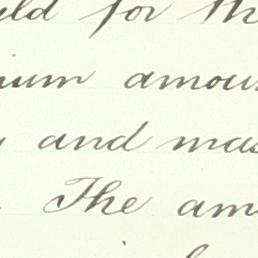 uld for th
nium amou
and mas
The am